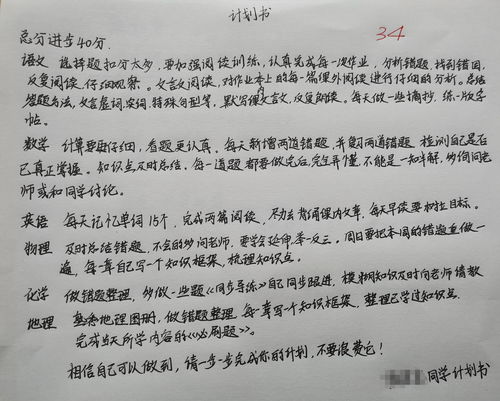 计划书
34
总分进步40分.
语文 选择题扣分太多,要加强阅读训练,认真完成每一次作业,分析错题,找到错因,
反复阅读,仔细观察。文言文阅读,对作业本上的每一篇课外阅读进行仔细的分析。总结
答题方法,文言虚词,实词,特殊句型等,默写课内文言文,反复朗读。每天做一些摘抄,练一版字
帖。
数学 计算要更仔细,看题更认真。每天新增两道错题,并复习两道错题 检测自己是否
已真正掌握。知识点及时总结,每一道题都要做完后,完全弄懂,不能是一知半解,多询问老
师或和同学讨论。
英语 每天记忆单词15个,完成两篇阅读,尽力去背诵课内文章,每天早读要树立目标。
物理 及时总结错题,不会的多问老师,要学会延伸,举一反三。周日要把本周的错题重做一
遍,每一章自己写一个知识框架,梳理知识点。
化学 做错题整理,多做一些题《同步导练》自己同步跟进,模糊知识及时问老师请教
地理 熟悉地理图册,做错题整理,每一章写一个知识框架,整理已学过知识点.
完成当天所学内容的《必刷题》。
相信自己可以做到,请一步一步完成你的计划,不要浪费它!
同学计划书